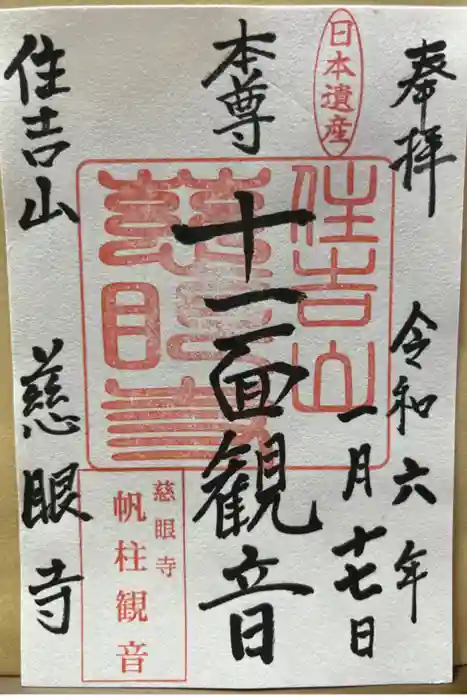 奉拝
令和六年
一月十七日
日本遺産
本尊
十一面観音
住吉山
慈眼寺
慈眼寺
帆柱観音
住吉山
慈眼寺